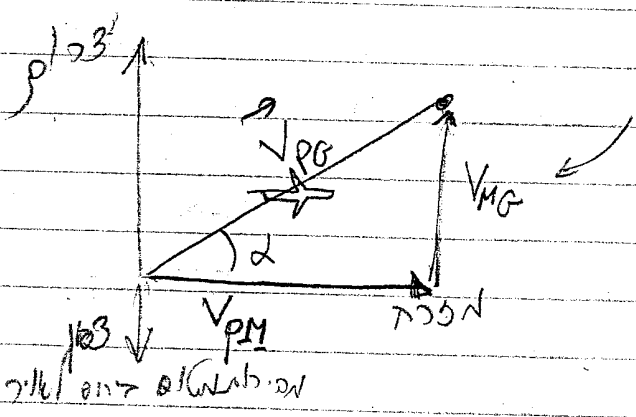 דרום
V⃗PG
VMG
α
VPM
מזרח
צפון
מהירות מטוס ביחס לאויר